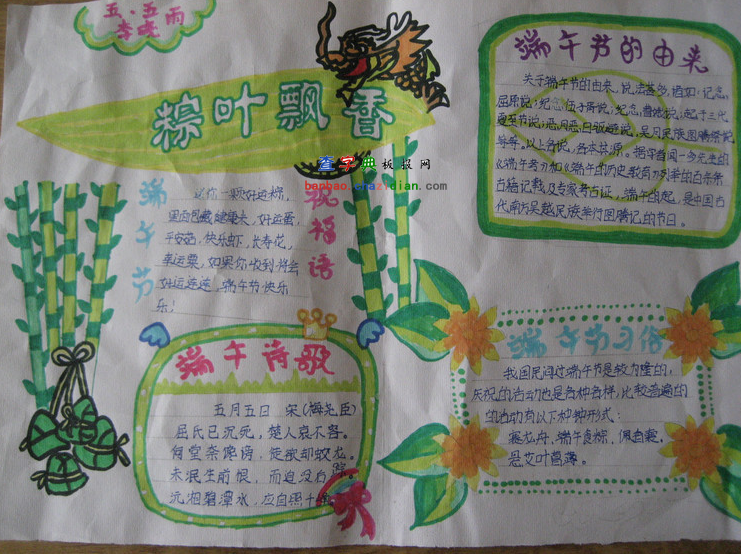 五·五
李晓雨
粽叶飘香
查字典板报网
banbao.chazidian.com
端午节
祝福语
送你一颗好运粽,
里面包藏健康大、好运蛋、
平安菇、快乐虾、长寿花、
幸运粟,如果你收到将会
好运连连,端午节快乐
乐!
端午诗歌
五月五日 宋(梅尧臣)
屈氏已沉死,楚人哀不容。
何尝奈谗谤,徒欲却蛟龙。
未泯生前恨,而追没后踪。
沅湘碧潭水,应自照千
端午节的由来
关于端午节的由来,说法甚多,诸如:纪念
屈原说;纪念伍子胥说;纪念曹娥说;起于三代
夏至节说;恶月恶日驱避说,吴月民族图腾祭说
等等。以上各说,各本其源。据学者闻一多先生的
《端午考》和《端午的历史教育》列举的百余条
古籍记载及专家考古证,端午的起,是中国古
代南方吴越民族举行图腾记的节日。
端午节习俗
我国民间过端午节是较为隆的,
庆祝的活动也是各种各样,比较普遍的
的活动有以下种种形式:
赛龙舟,端午食粽,佩香囊,
悬艾叶菖蒲。